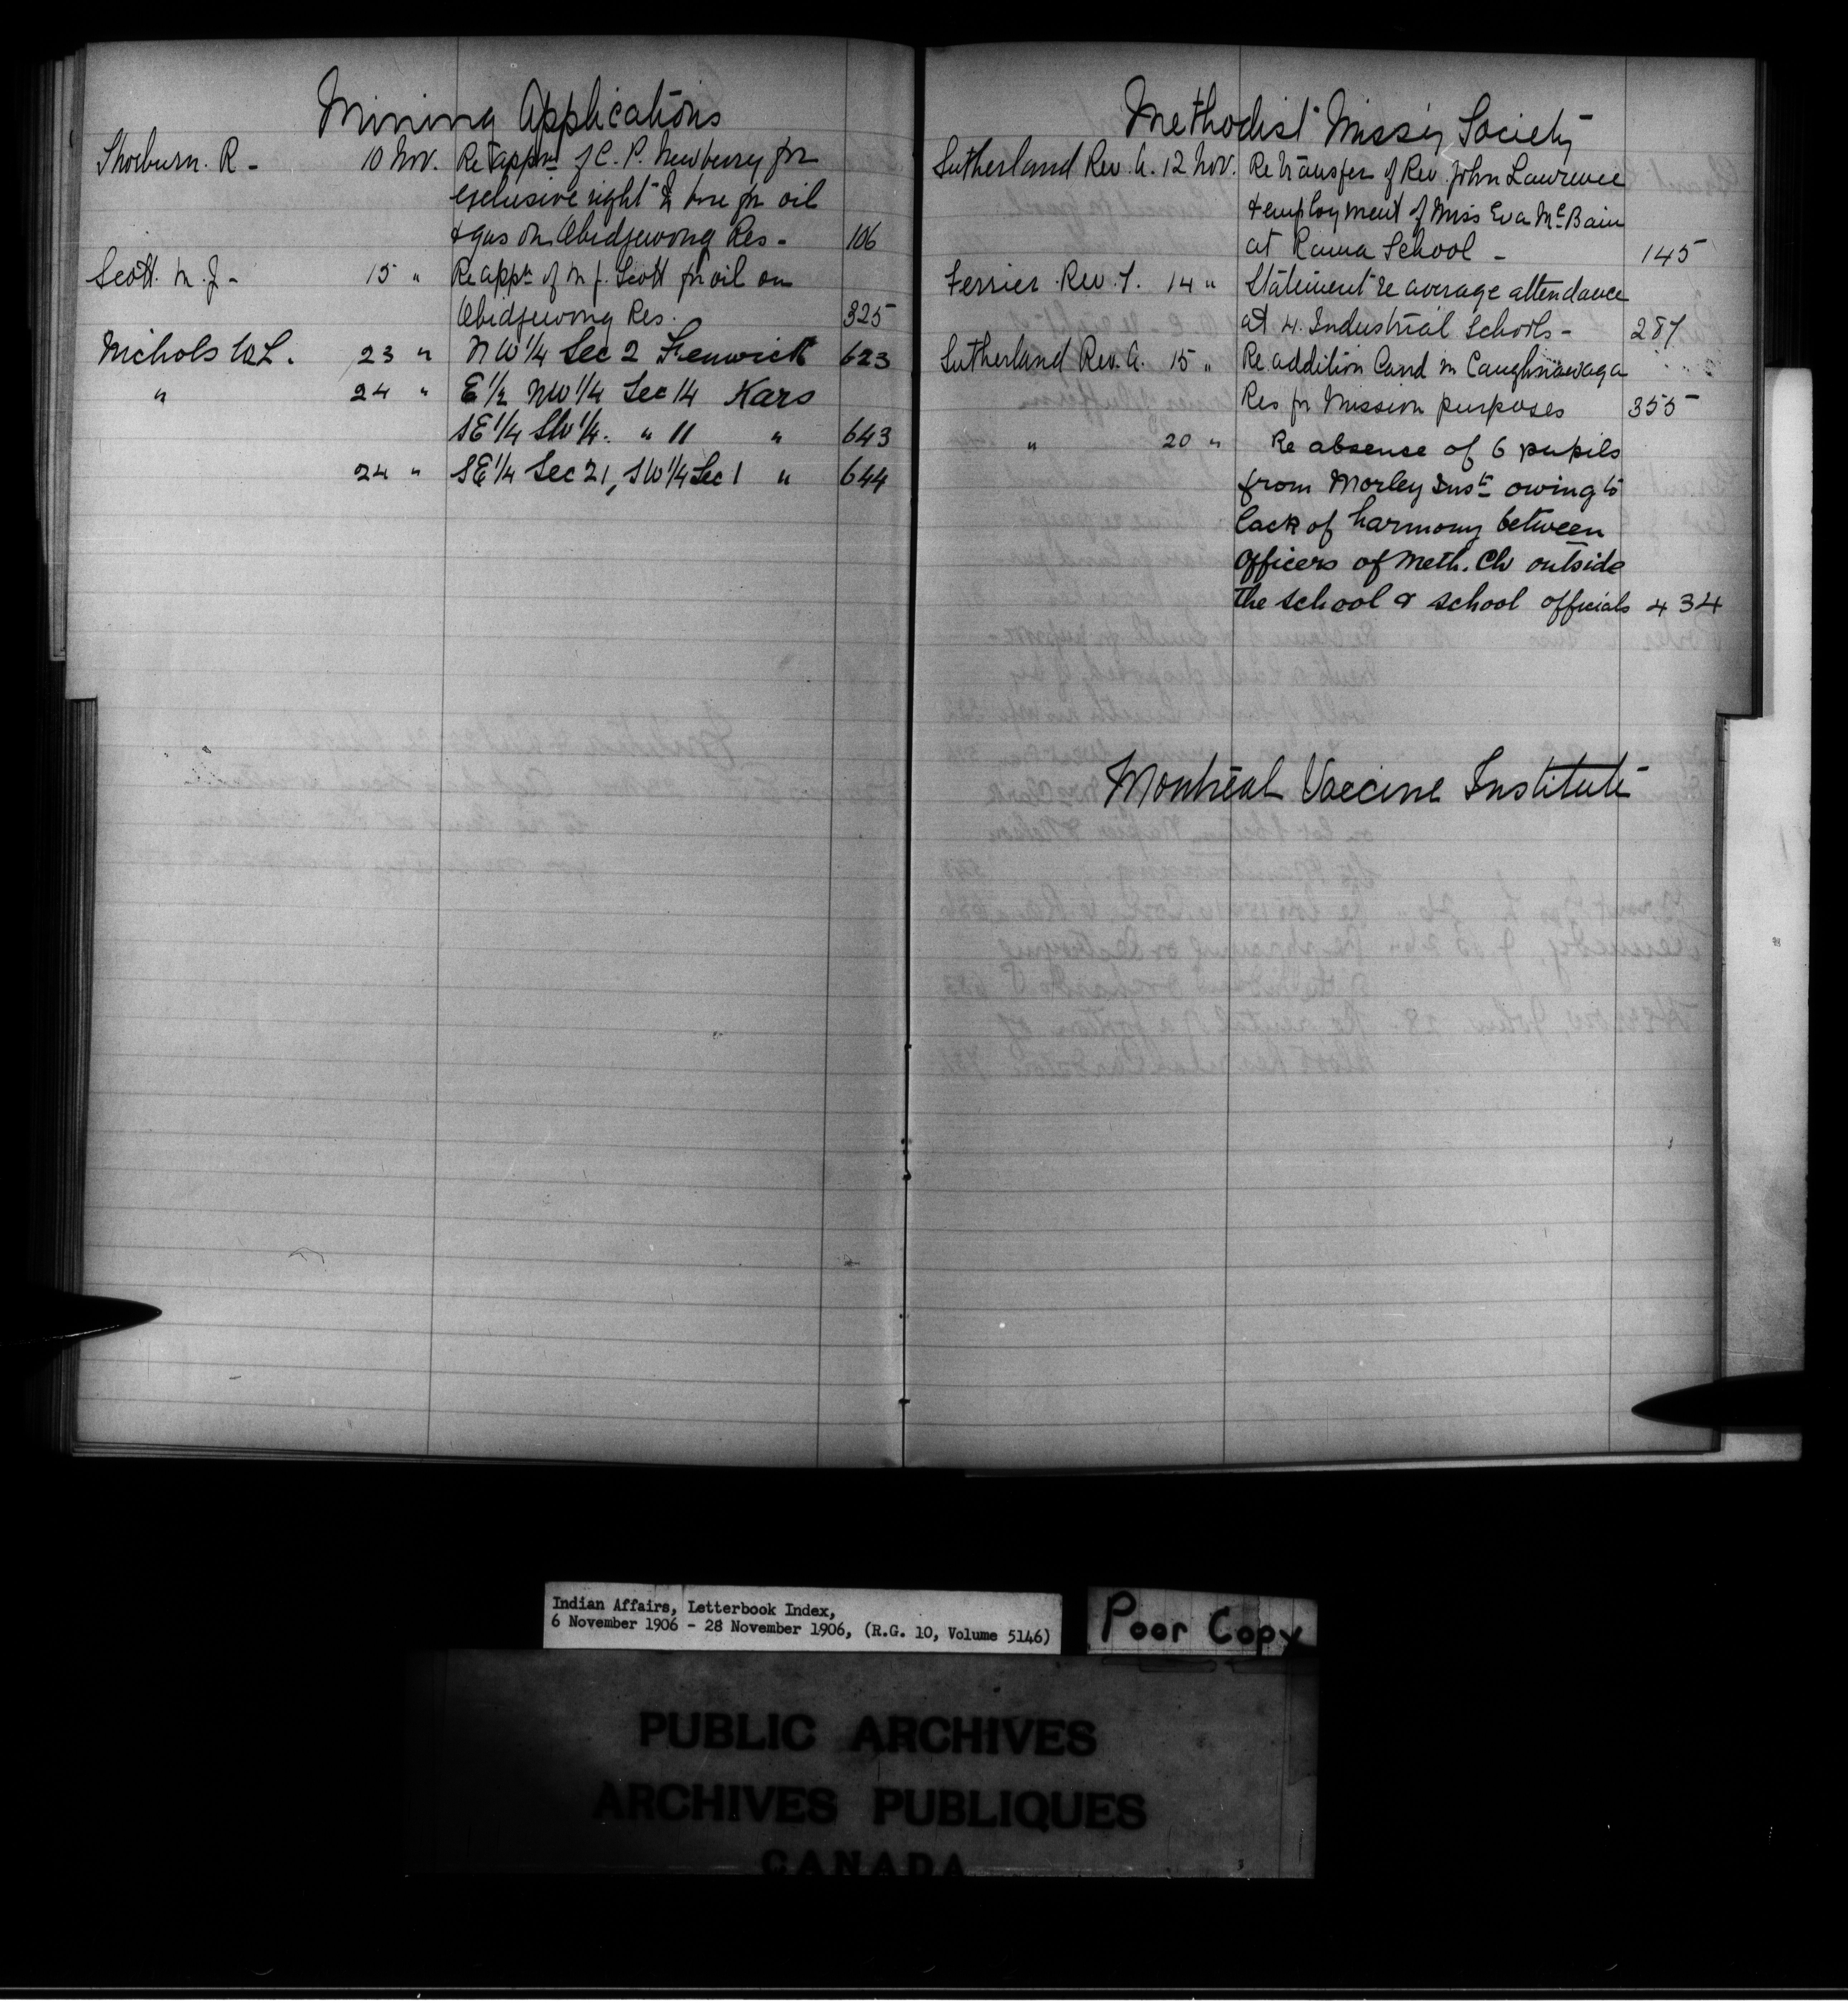 Mining Applications
Thorburn. R - 10 Nov. Re appn of C. P. Newberry for
exclusive right to bore for oil
& gas on Obidjewong Res - 106
Scott. M. J - 15 " Re appn of M J. Scott for oil on
Obidjewong Res. 325
Nichols W L. 23 " NW 1/4 Sec 2 Fenwick 623
" 24 " E 1/2 NW 1/4 Sec 14 Kars
SE 1/4 SW 1/4. " 11 " 643
24 " SE 1/4 Sec 21, SW 1/4 Sec 1 " 644
Methodist Missy Society
Sutherland Rev. A. 12 Nov. Re transfer of Rev. John Lawrence
& employment of Miss Eva McBain
at Rama School - 145
Ferrier Rev. T. 14 " Statement re average attendance
at 4. Industrial Schools - 287
Sutherland Rev. A. 15 " Re addition land in Caughnawaga
Res for Mission purposes 355
" 20 " Re absence of 6 pupils
from Morley Inst. owing to
lack of harmony between
Officers of Meth. Ch outside
the school & school officials 434
Montreal Vaccine Institute
Indian Affairs, Letterbook Index,
6 November 1906 - 28 November 1906, (R.G. 10, Volume 5146)
Poor Copy
PUBLIC ARCHIVES
ARCHIVES PUBLIQUES
CANADA